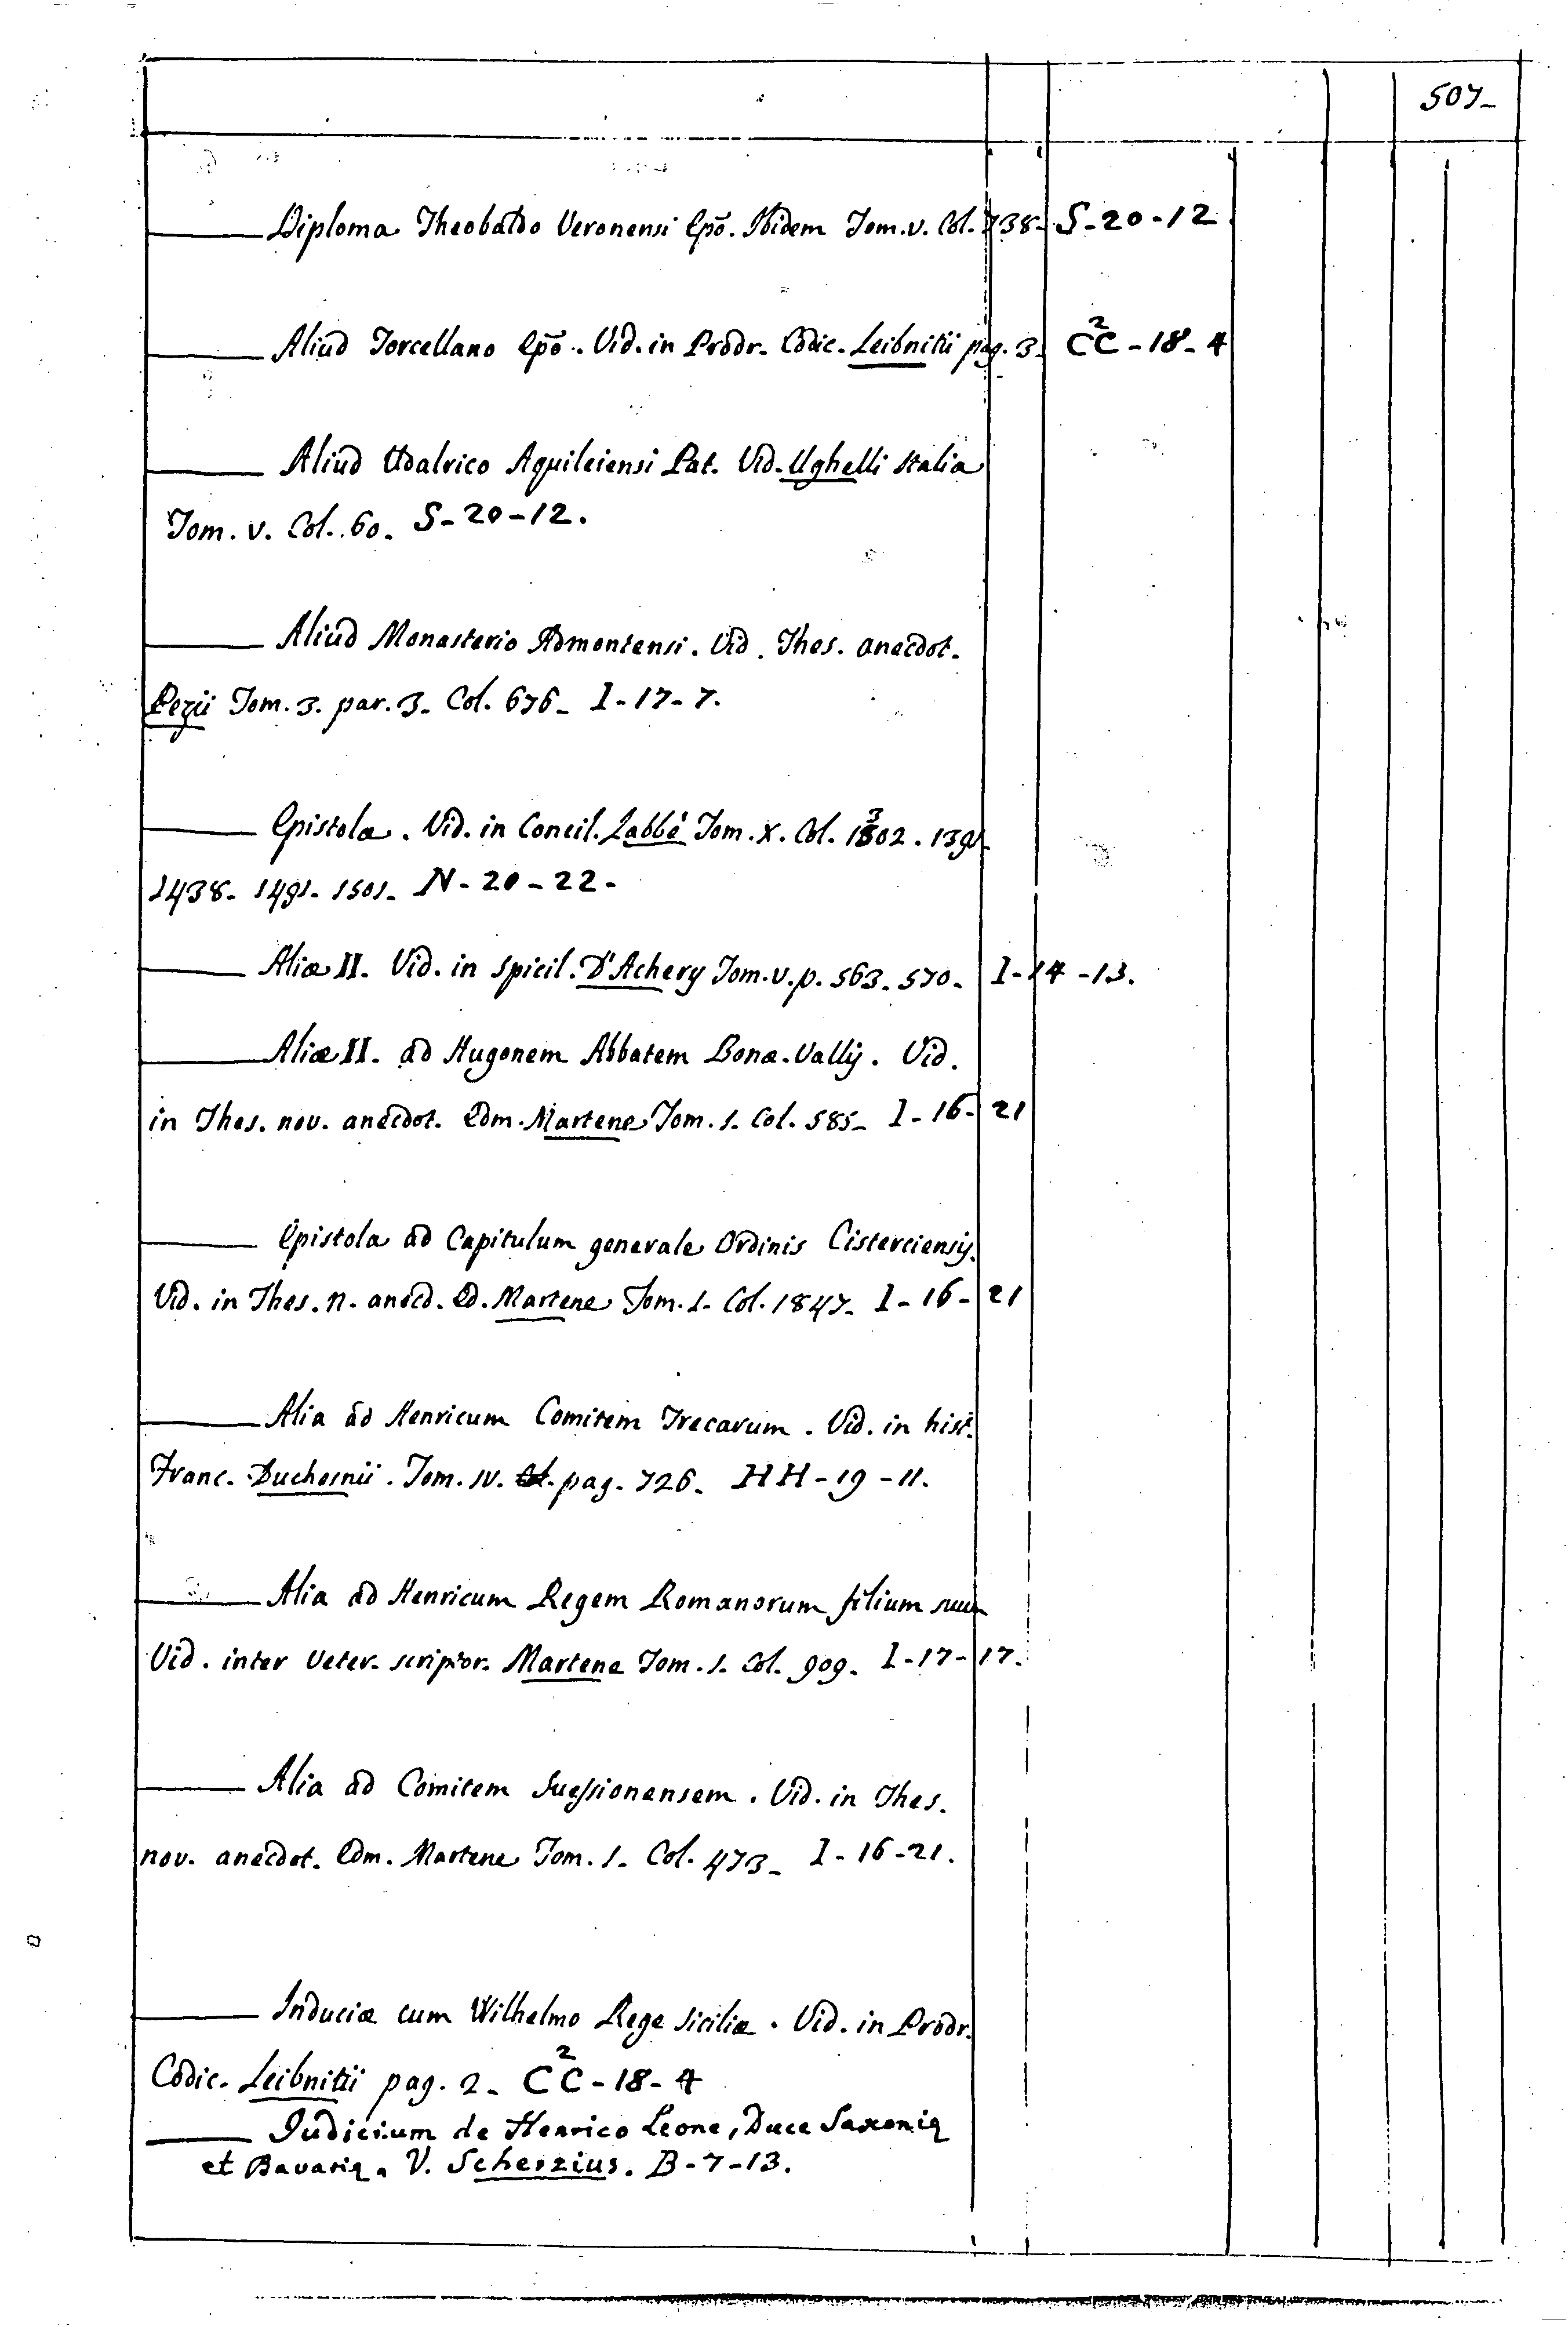 507_
——— Diploma Theobaldo Veronensi Epō. Ibidem Tom. v. Col. 738- S-20-12
——— Aliud Torcellano Epō. Vid. in Prodr. Codic. Leibnitii pag. 3. CC²-18-4
——— Aliud Udalrico Aquileiensi Pat. Vid. Ughelli Italia
Tom. v. Col. 60. S-20-12.
——— Aliud Monasterio Admontensi. Vid. Thes. anecdot.
Pezii Tom. 3. par. 3. Col. 676_ I-17-7.
——— Epistolæ. Vid. in Concil. Labbé Tom. X. Col. 1302. 1391-
1438- 1491- 1501- N-20-22-
——— Aliæ II. Vid. in Spicil. D'Achery Tom. v. p. 563. 570. I-14-13.
——— Aliæ II. ad Hugonem Abbatem Bonæ-Vallis. Vid.
in Thes. nov. anecdot. Edm. Martene Tom. 1. Col. 585_ I-16-21
——— Epistola ad Capitulum generale Ordinis Cisterciensis.
Vid. in Thes. n. anecd. Ed. Martene Tom. 1. Col. 1847_ I-16-21
——— Alia ad Henricum Comitem Trecarum. Vid. in hist.
Franc. Duchesnii. Tom. IV. pag. 726_ HH-19-11.
——— Alia ad Henricum Regem Romanorum filium suum
Vid. inter Veter. scriptor. Martene Tom. 1. Col. 909. I-17-17.
——— Alia ad Comitem Suessionensem. Vid. in Thes.
nov. anecdot. Edm. Martene Tom. 1. Col. 473_ I-16-21.
——— Induciæ cum Wilhelmo Rege Siciliæ. Vid. in Prodr.
Codic. Leibnitii pag. 2_ CC²-18-4
——— Judicium de Henrico Leone, Duce Saxoniæ
et Bavariæ. V. Scherzius. B-7-13.